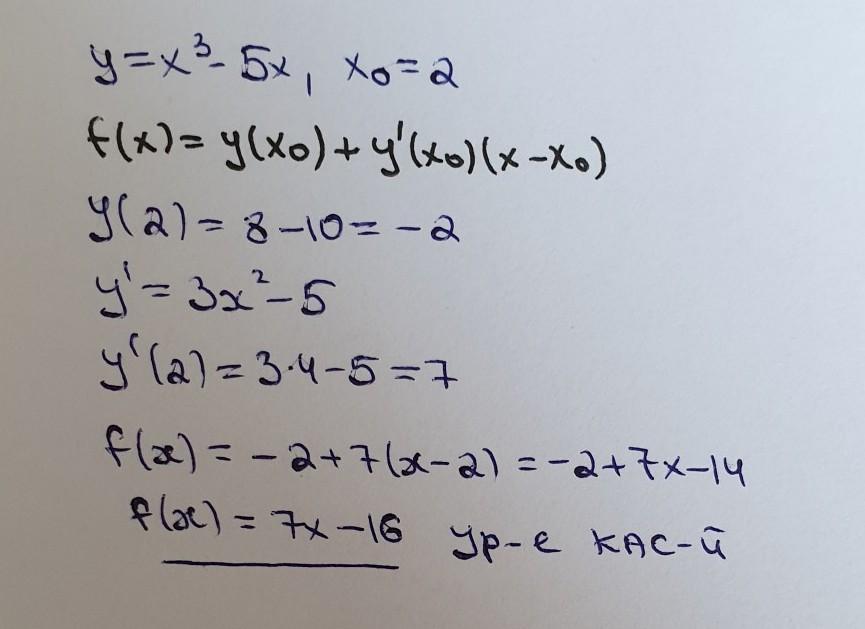 y=x³-5x, x₀=2
f(x)=y(x₀)+y'(x₀)(x-x₀)
y(2)=8-10=-2
y'=3x²-5
y'(2)=3·4-5=7
f(x)=-2+7(x-2)=-2+7x-14
f(x)=7x-16 ур-е кас-й